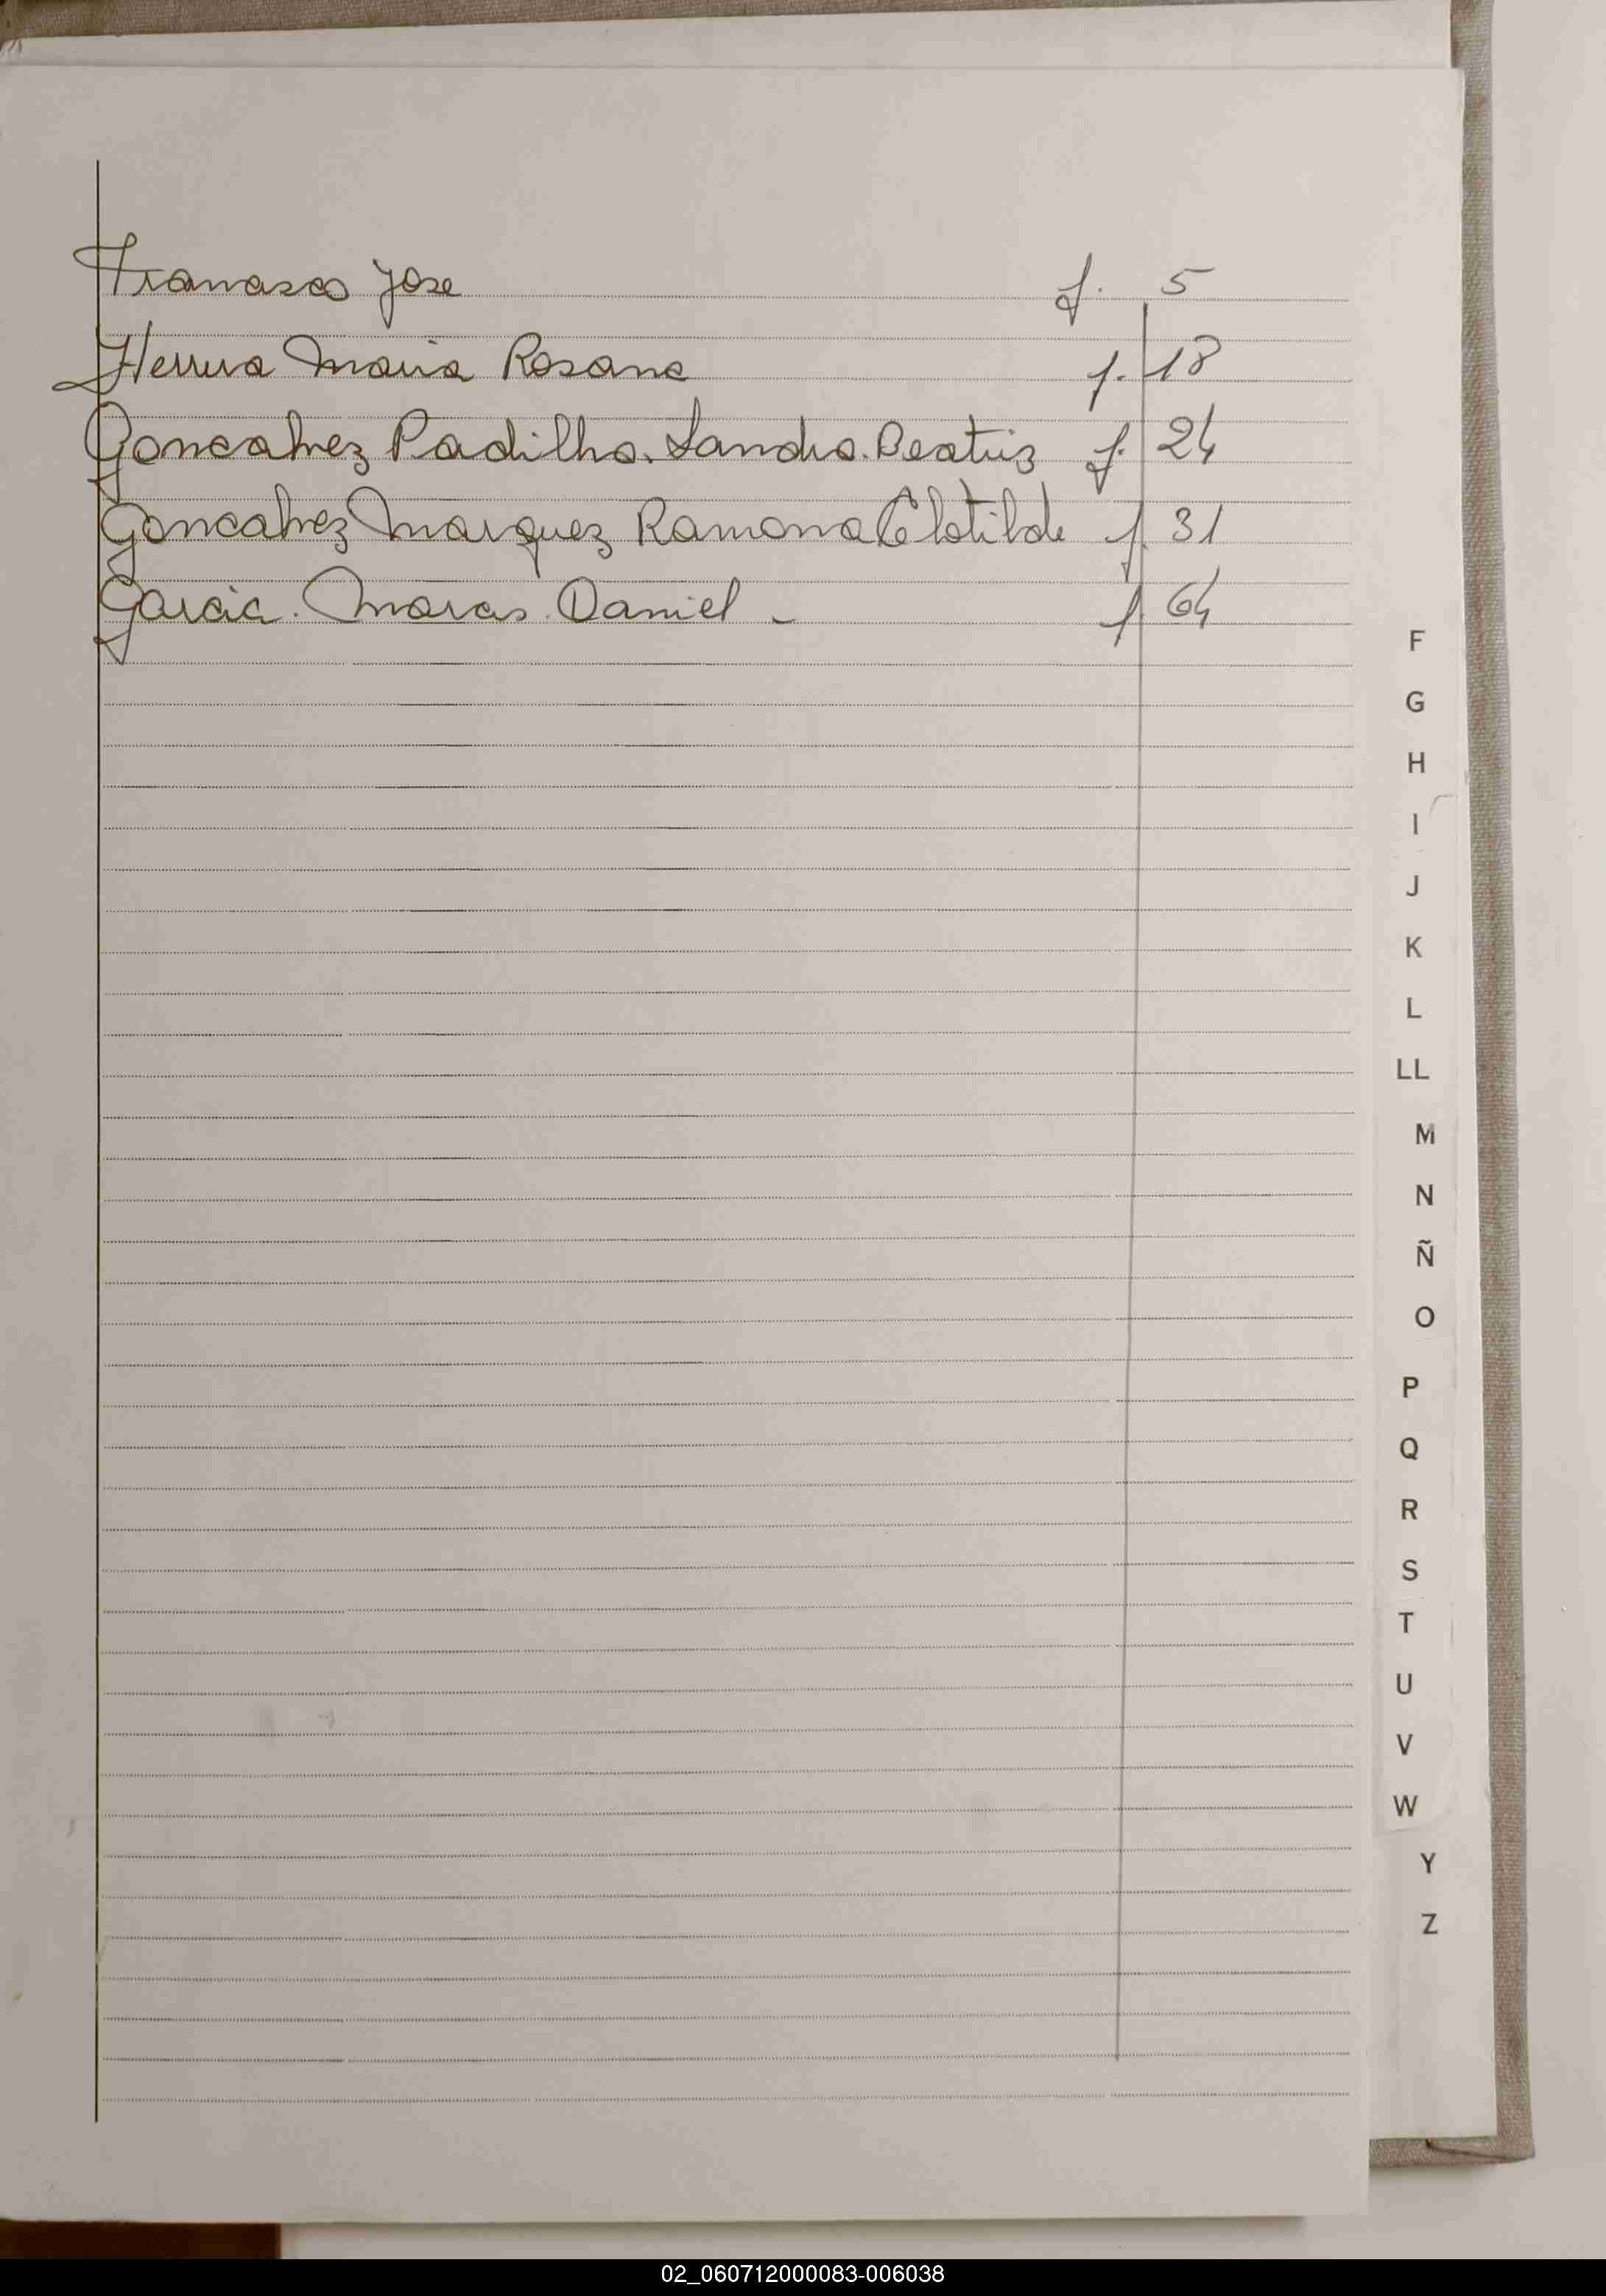 Francisco Jose f. 5
Herrera Maria Rosana f. 18
Goncalvez Padilha. Sandra. Beatriz f. 24
Goncalvez Marquez Ramona Clotilde f. 31
Garcia. Marcos. Daniel - f. 64
F
G
H
I
J
K
L
LL
M
N
Ñ
O
P
Q
R
S
T
U
V
W
Y
Z
02_060712000083-006038